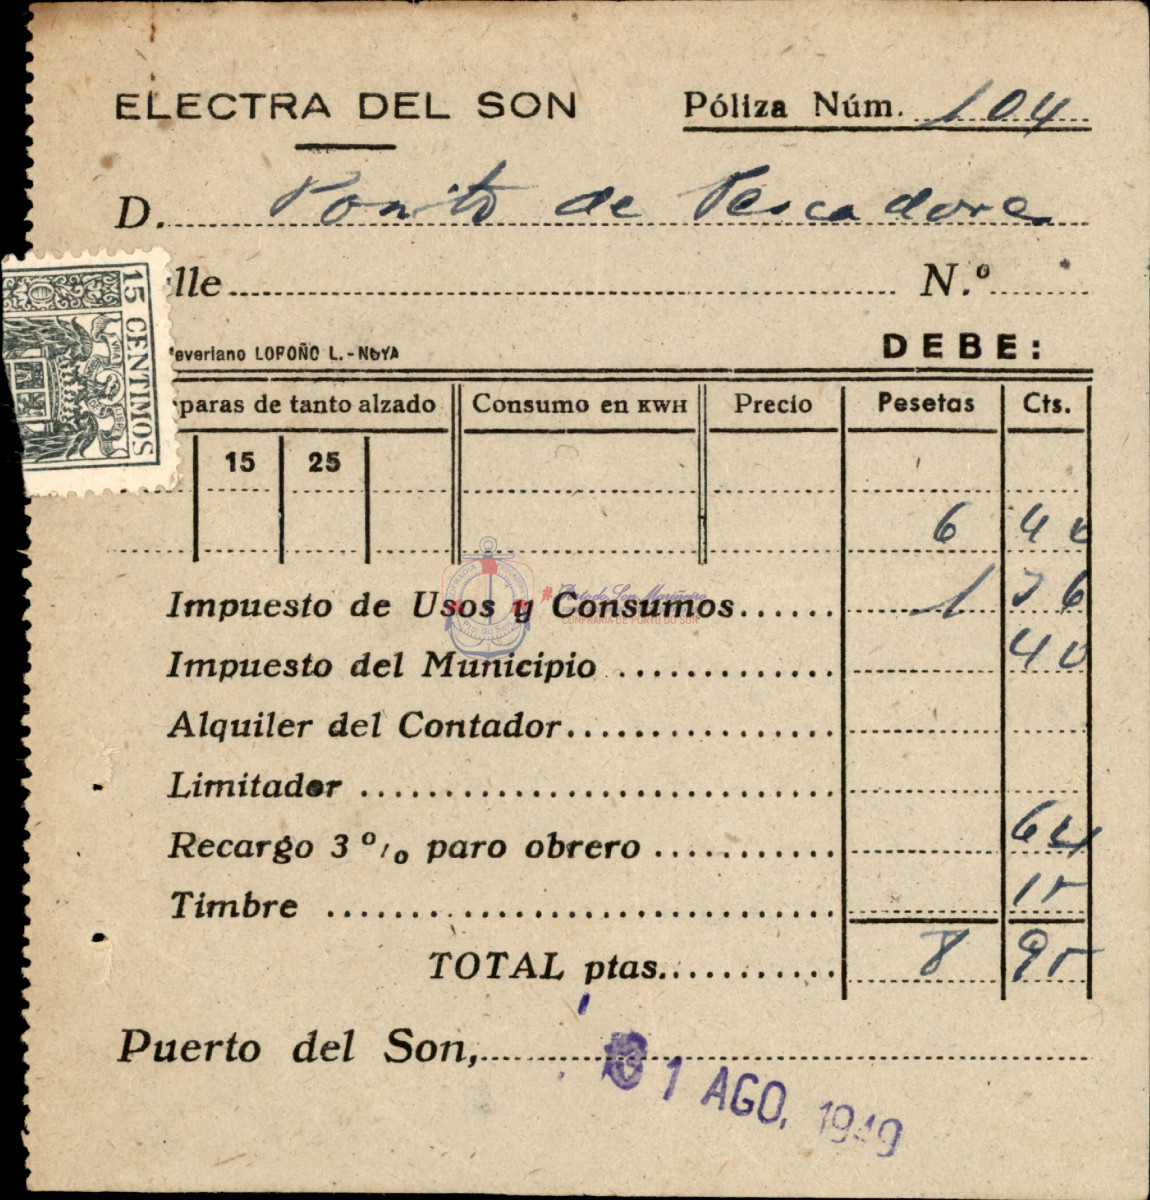 ELECTRA DEL SON Póliza Núm. 104
D. Posito de Pescadores
lle N.º
everiano LOROÑO L.-NOYA DEBE:
paras de tanto alzado Consumo en KWH Precio Pesetas Cts.
15 25
6 40
Impuesto de Usos y Consumos 1 36
Impuesto del Municipio 40
Alquiler del Contador
Limitador
Recargo 3 % paro obrero 64
Timbre 15
TOTAL ptas. 8 95
Puerto del Son,
1 AGO. 1949
15 CENTIMOS
CONFRARÍA DE PORTO DO SON